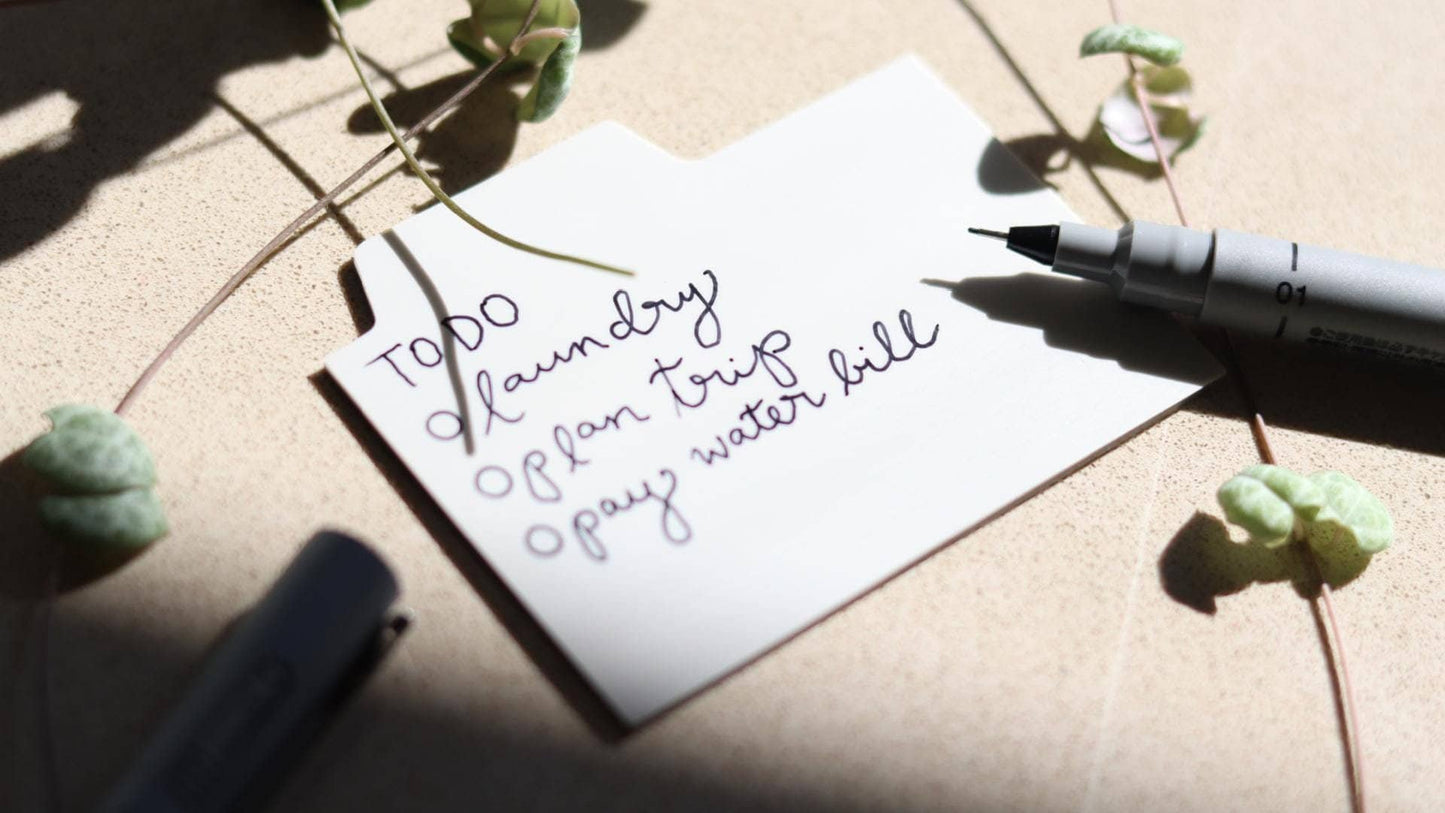 TODO
laundry
plan trip
pay water bill
01